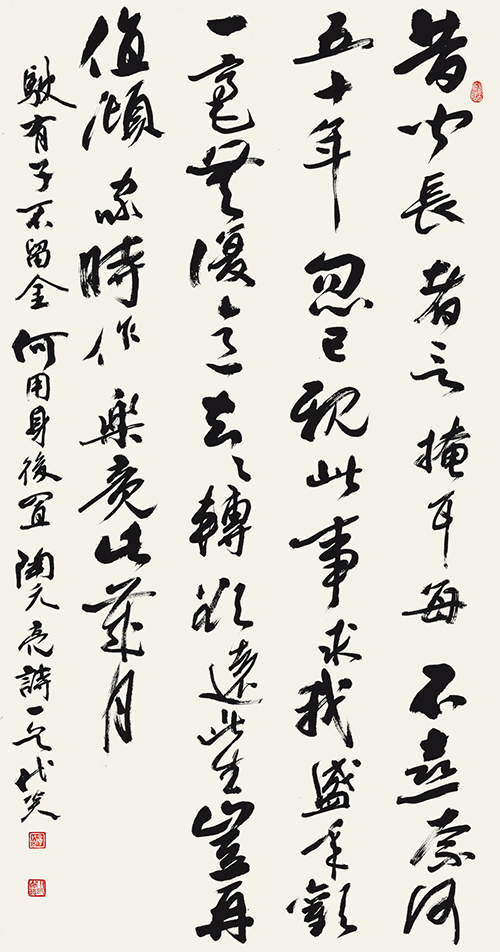 昔聞長者言掩耳每不喜奈何
五十年忽已親此事求我盛年歡
一毫無復意去々轉欲遠此生豈再
值傾家時作樂竟此歲月
駛有子不留金何用身後置陶元亮詩一